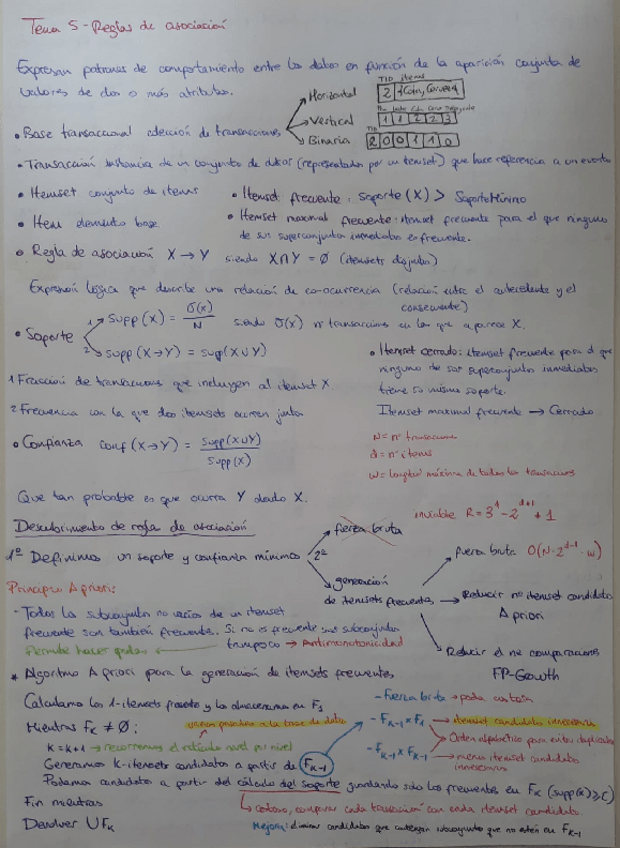 Tema 5 - Reglas de asociación
Expresan patrones de comportamiento entre los datos en función de la aparición conjunta de
valores de dos o más atributos.
• Base transaccional colección de transacciones
Horizontal
TID items
2 {Cola, Cerveza}
Vertical
1 1 2 2 3
Binaria
TID
2 0 0 1 1 0
• Transacción instancia de un conjunto de datos (representados por un itemset) que hace referencia a un evento
• Itemset conjunto de items
• Itemset frecuente: soporte (X) > Soporte Mínimo
• Item elemento base
• Itemset maximal frecuente: itemset frecuente para el que ninguno
de sus superconjuntos inmediatos es frecuente.
• Regla de asociación X → Y siendo X ∩ Y = ∅ (itemsets disjuntos)
Expresión lógica que describe una relación de co-ocurrencia (relación entre el antecedente y el
consecuente)
• Soporte
1 supp (X) = σ(x) / N siendo σ(x) nº transacciones en las que aparece X.
2 supp (X→Y) = sup(X∪Y)
• Itemset cerrado: itemset frecuente para el que
ninguno de sus superconjuntos inmediatos
tiene su mismo soporte.
1 Fracción de transacciones que incluyen al itemset X
2 Frecuencia con la que dos itemsets ocurren juntos
Itemset maximal frecuente → Cerrado
• Confianza conf (X→Y) = supp(X∪Y) / supp(X)
N = nº transacciones
d = nº items
w = longitud máxima de todas las transacciones
Que tan probable es que ocurra Y dado X.
Descubrimiento de regla de asociación
1º Definimos un soporte y confianza mínimos
2º
fuerza bruta
inviable R = 3^d - 2^(d+1) + 1
generación
de itemsets frecuentes
fuerza bruta O(N·2^(d-1)·w)
Reducir nº itemset candidatos
A priori
Reducir el nº comparaciones
FP-Growth
Principio A priori:
- Todos los subconjuntos no vacíos de un itemset
frecuente son también frecuentes. Si no es frecuente sus subconjuntos
tampoco → Antimonotonicidad
Permite hacer podas
* Algoritmo A priori para la generación de itemsets frecuentes
Calculamos los 1-itemsets y los almacenamos en F1
Mientras Fk ≠ ∅:
varias pasadas a la base de datos
K = K+1 → recorremos el retículo nivel por nivel
Generamos k-itemsets candidatos a partir de Fk-1
- Fuerza bruta → poda costosa
- Fk-1 × F1 → itemset candidatos innecesarios
Orden alfabético para evitar duplicados
- Fk-1 × Fk-1 → menos itemset candidatos
innecesarios
Podamos candidatos a partir del cálculo del soporte guardando solo los frecuentes en Fk (supp(x) ≥ C)
costoso, comparar cada transacción con cada itemset candidato.
Fin mientras
Devolver ∪Fk
Mejora: eliminar candidatos que contengan subconjuntos que no estén en Fk-1